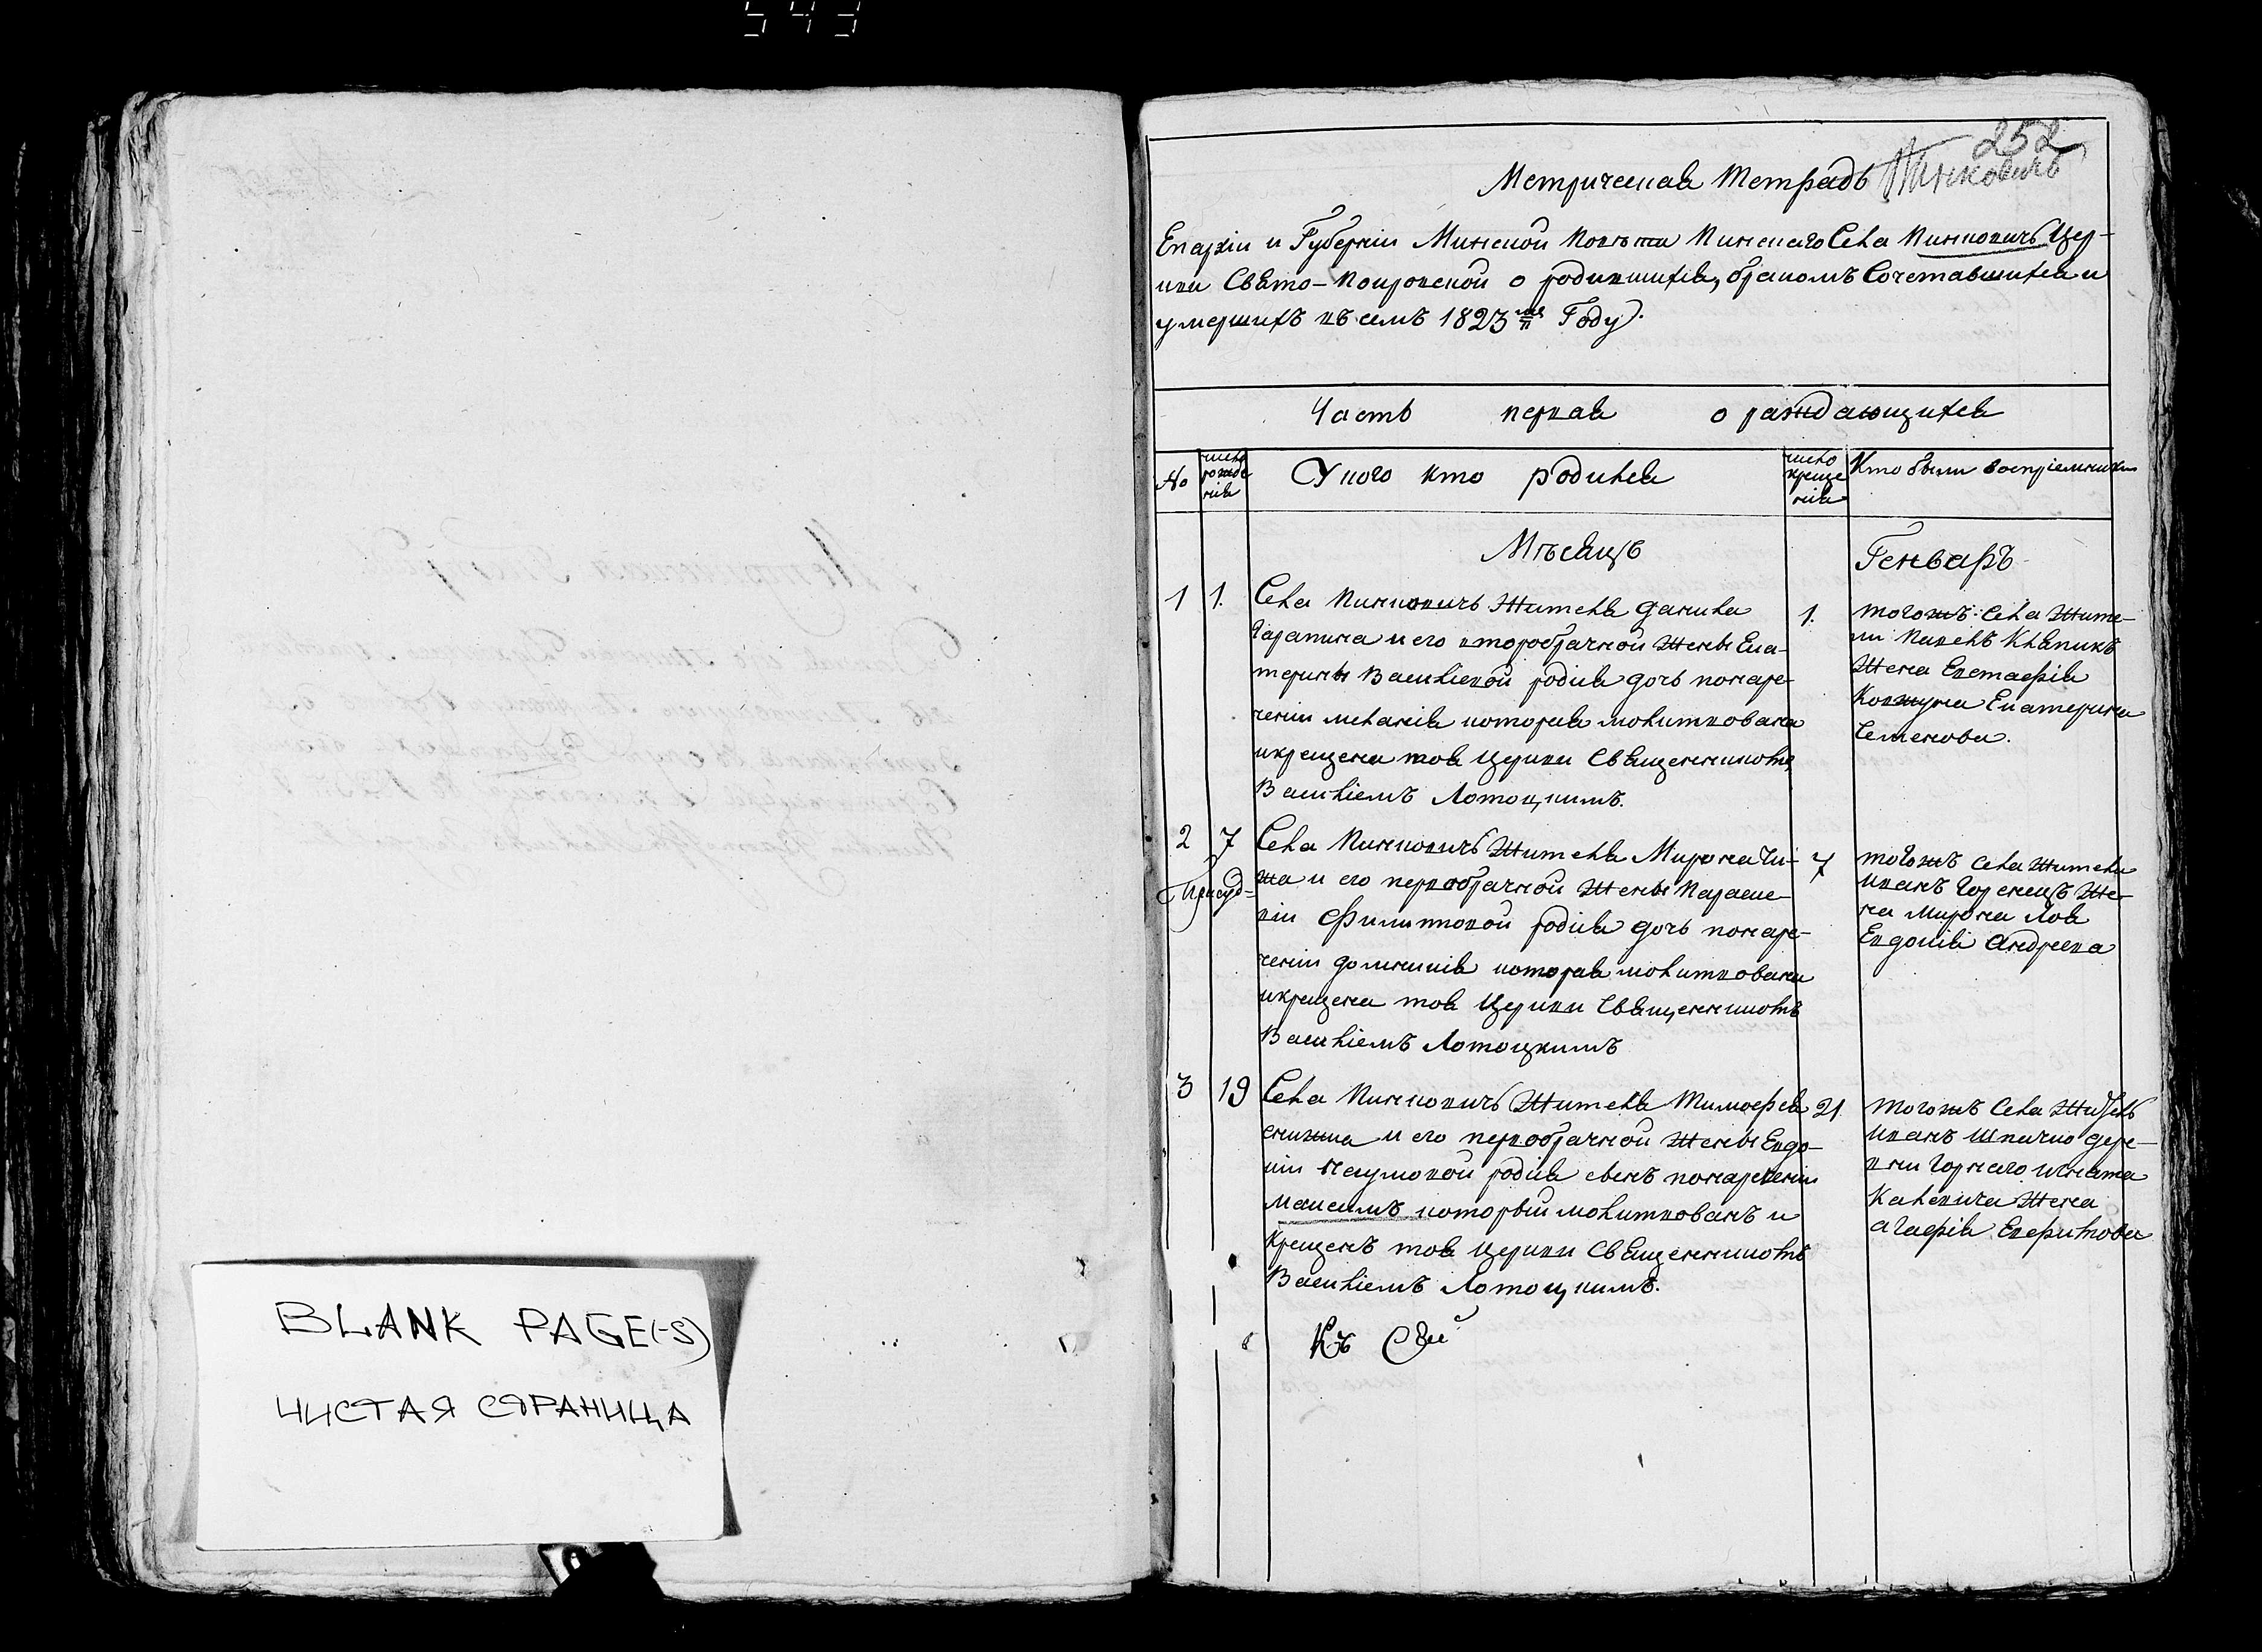 543
BLANK PAGE(-S)
ЧИСТАЯ СТРАНИЦА
252
Метрическая Тетрадь Пинковичъ
Епархіи и Губерніи Минской Повѣта Пинскаго Села Пинковичъ Цер-
кви Свято-Покровской о родившихся, бракомъ Сочетавшихся и
умершихъ въ семъ 1823 м Году.
Часть первая о раждающихся
№ число рожде нія У кого кто родился число креще нія Кто были воспріемники
Мѣсяцъ Генваръ
1 1. Села Пинковичъ Жителя Данила
Гарапина и его второбрачной Жены Ека-
терины Васильевой родися дочь понаре-
ченіи меланія которая молитвована
и крещена тоя Церкви Священникомъ
Василіемъ Лотоцкимъ.
1. тогожъ Села Жите-
ли Павелъ Кляпикъ
Жена Евстафія
Ковжуна Екатерина
Семенова.
2 7 Села Пинковичъ Жителя Мирона Чи-
жа и его первобрачной Жены Параске-
віи Филиповой родися дочь понаре-
ченіи домникія которая молитвована
и крещена тоя Церкви Священникомъ
Василіемъ Лотоцкимъ
7 тогожъ Села Жители
Иванъ Горенецъ Же-
на Мирона Лоя
Евдокія Андреева
3 19 Села Пинковичъ Жителя Тимофея
снижка и его первобрачной Жены Евдо-
кіи Наумовой родися сынъ понареченіи
Максимъ который молитвованъ и
Крещенъ тоя Церкви Священникомъ
Василіемъ Лотоцкимъ.
21. тогожъ Села Житель
Иванъ Шпичко дере-
вни Горнаго Игната
Калевича Жена
Агафія Евфимова
Къ Сей